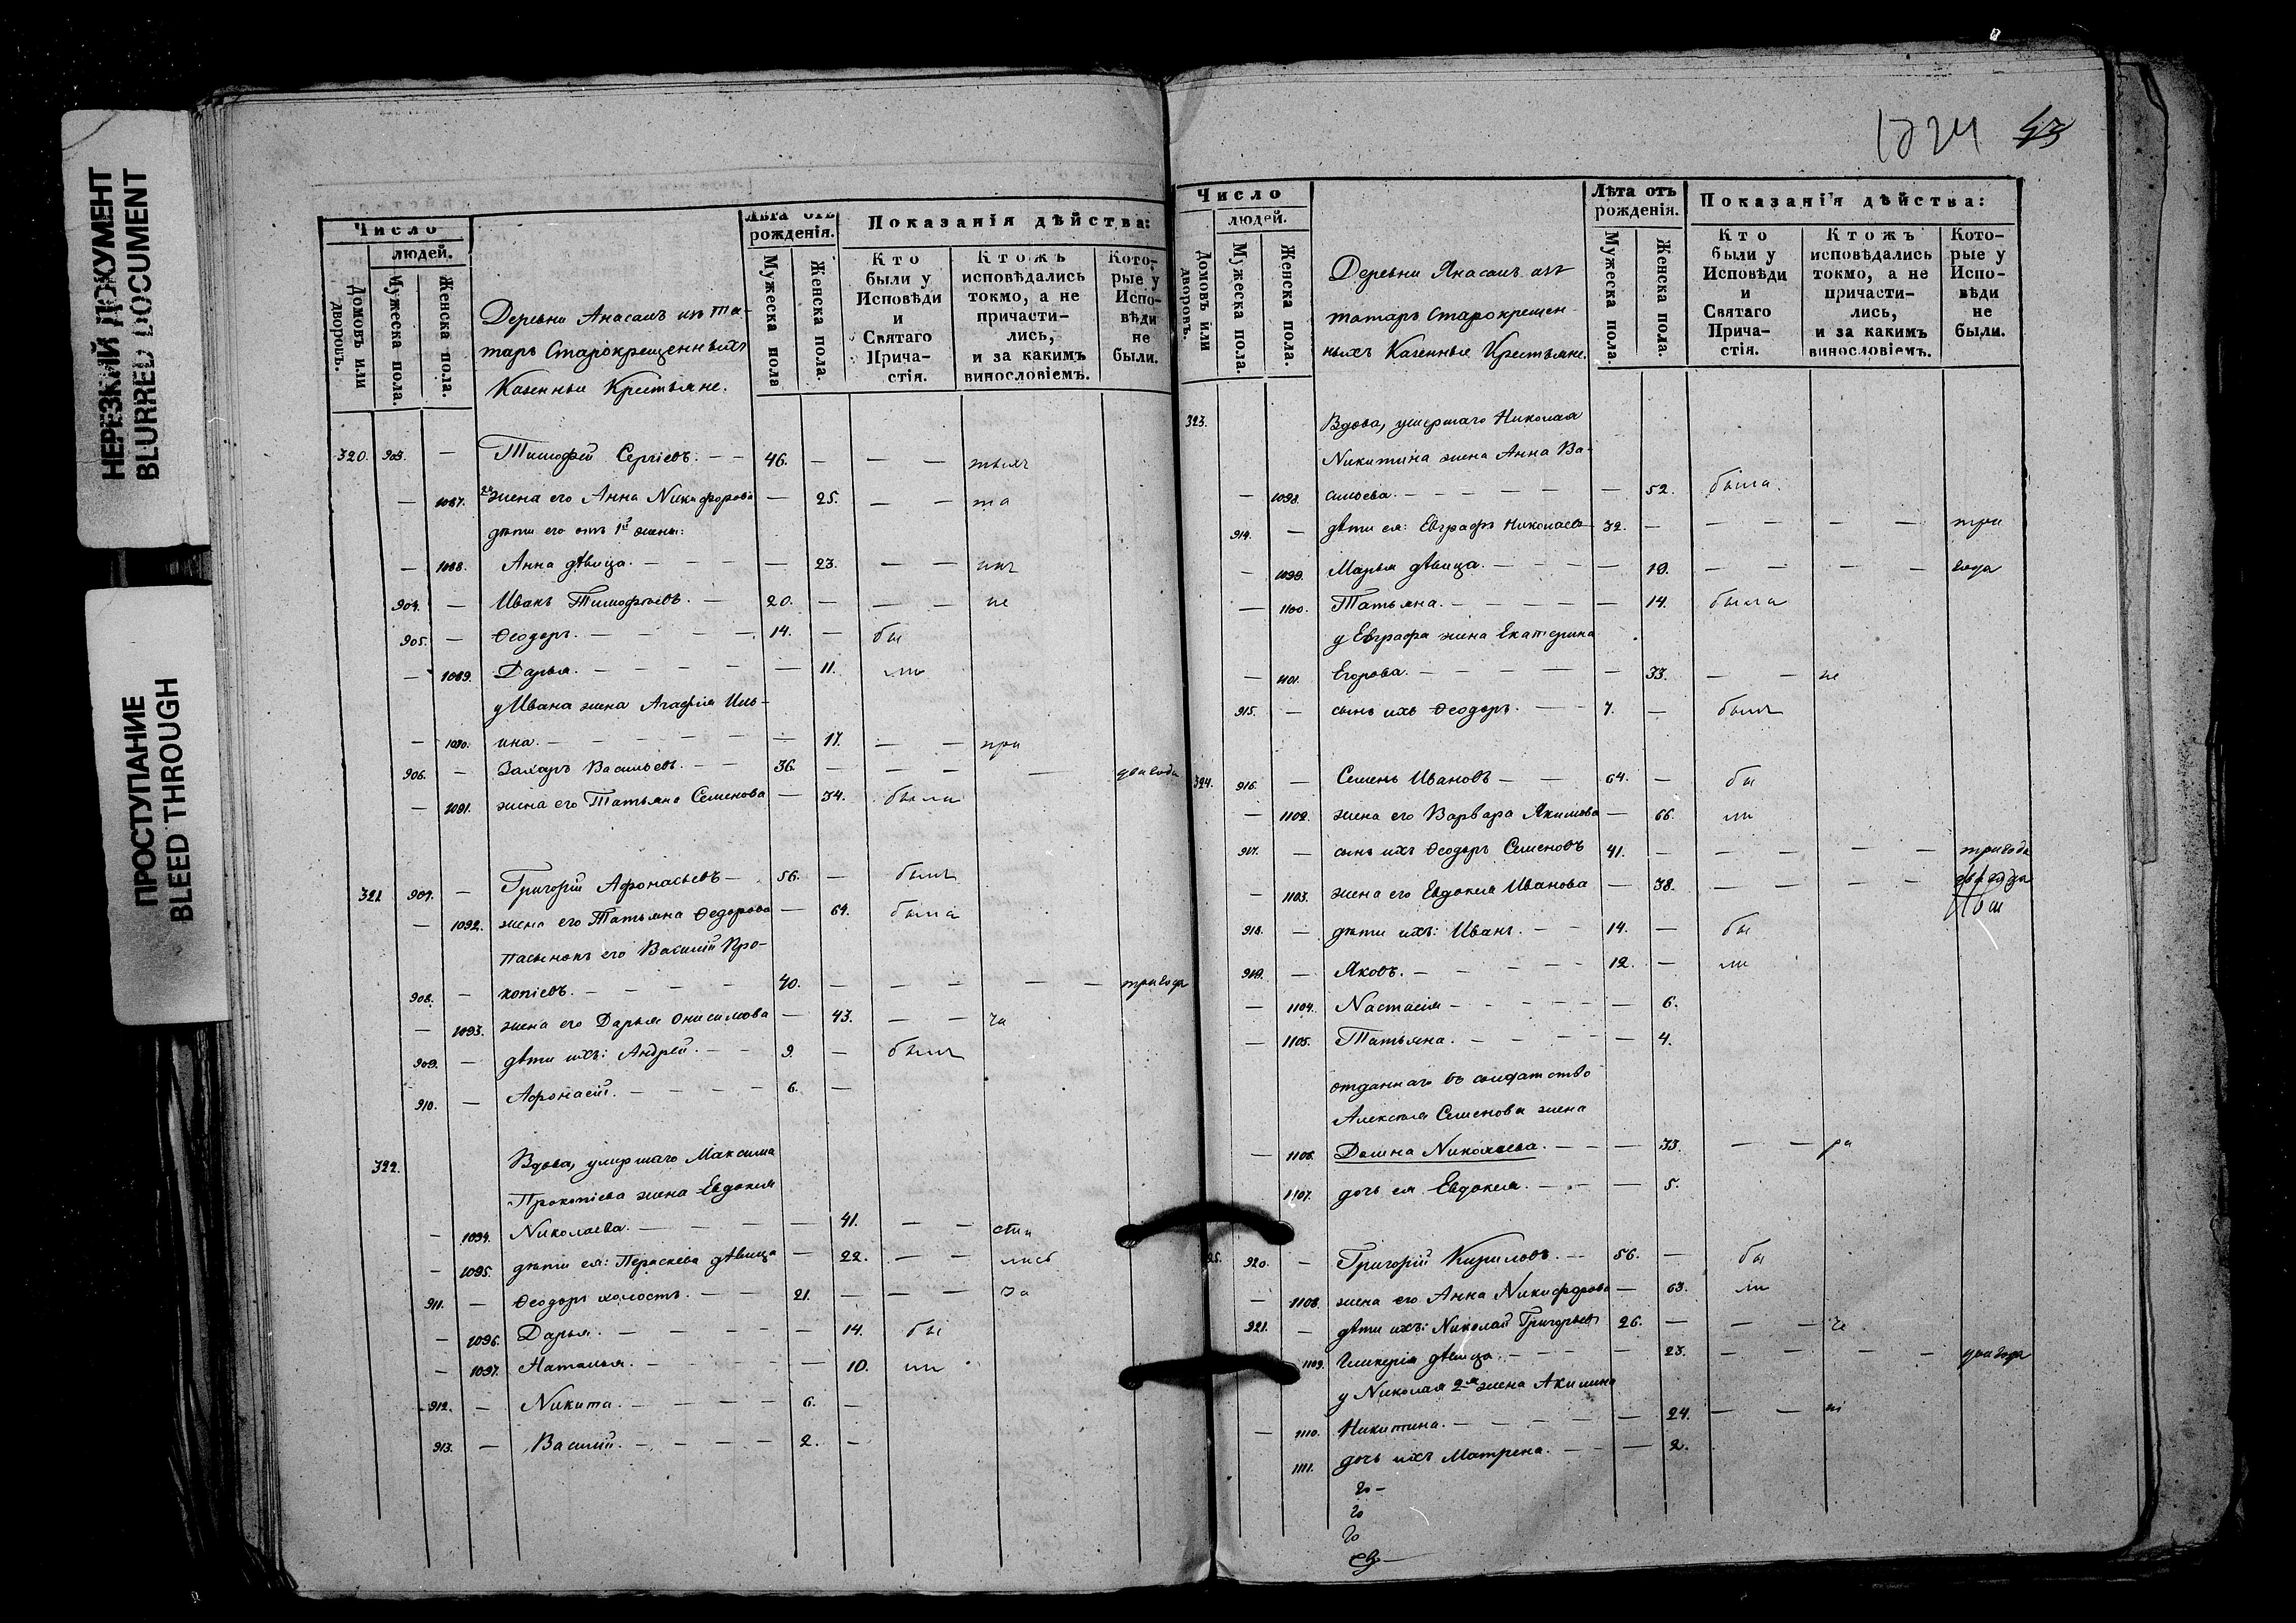 НЕРЕЗКИЙ ДОКУМЕНТ
BLURRED DOCUMENT
ПРОСТУПАНИЕ
BLEED THROUGH
Число
людей.
Домовъ или дворовъ.
Мужеска пола.
Женска пола.
Деревни Янасалъ изъ та-
таръ Старокрещенныхъ
Казенные Крестьяне.
Лѣта отъ рожденія.
Мужеска пола
Женска пола.
Показанія дѣйства:
Кто были у Исповѣди и Святаго Прича- стія.
Ктожъ исповѣдались токмо, а не причасти- лись, и за какимъ винословіемъ.
Кото- рые у Испо- вѣди не были.
320. 903. — Тимофей Сергіевъ. — — 46. — — —
— 1087. 2я жена его Анна Никифорова — 25. — — та
дѣти его отъ 1й жены:
— 1088. Анна дѣвица. — — — — 23. — —
904. — Иванъ Тимофѣевъ. — 20. — — — не
905. — Ѳеодоръ. — — — — 14. — бы
— 1089. Дарья. — — — — — 11. ли
у Ивана жена Агафія Иль-
— 1090. ина. — — — — — — 17. — — при
906. — Захаръ Васильевъ. — — 36. — — — — два года
— 1091. жена его Татьяна Семенова — 34. была
321 907. — Григорій Афонасьевъ — 56. — былъ
— 1092. жена его Татьяна Ѳедорова — 64. была
пасынокъ его Василій Про-
908. — копіевъ. — — — — 40. — — — — — три года
— 1093. жена его Дарья Онисимова — 43. — — ча
909. — дѣти ихъ: Андрей. — — 9. — былъ
910. — Афонасій. — — — — 6. —
322. Вдова, умершаго Максима
Прокопіева жена Евдокія
— 1094. Николаева. — — — — — 41. — — сти
— 1095. дѣти ея: Параскева дѣвица — 22. — — лись
911. — Ѳеодоръ холостъ. — — 21. — — — за
— 1096. Дарья. — — — — — 14. бы
— 1097. Наталья. — — — — — 10. ли
912. — Никита. — — — — 6. —
913. — Василій. — — — — 2. —
43
Число
людей.
Домовъ или дворовъ.
Мужеска пола.
Женска пола.
Деревни Янасалъ изъ
татаръ Старокрещен-
ныхъ Казенные Крестьяне.
Лѣта отъ рожденія.
Мужеска пола.
Женска пола.
Показанія дѣйства:
Кто были у Исповѣди и Святаго Прича- стія.
Ктожъ исповѣдались токмо, а не причасти- лись, и за какимъ винословіемъ.
Кото- рые у Испо- вѣди не были.
323. Вдова, умершаго Николая
Никитина жена Анна Ва-
— 1098. сильева. — — — — — — 52. была.
914. — дѣти ея: Евграфъ Николаевъ 32. — — — — — три
— 1099. Марья дѣвица. — — — — 19. — — — — года
— 1100. Татьяна. — — — — — 14. была
у Евграфа жена Екатерина
— 1101. Егорова. — — — — — 33. — — не
915. — сынъ ихъ Ѳеодоръ. — — 7. — былъ
324. 916. — Семенъ Ивановъ — — 64. — бы
— 1102. жена его Варвара Якимова — 66. ли
917. — сынъ ихъ Ѳеодоръ Семеновъ 41. — — — — — три года
— 1103. жена его Евдокія Иванова — 38. — — — — два года
918. — дѣти ихъ: Иванъ. — — 14. — бы
919. — Яковъ. — — — — 12. — ли
— 1104. Настасія — — — — — 6.
— 1105. Татьяна. — — — — — 4.
отданнаго въ солдатство
Алексѣя Семенова жена
— 1106. Домна Николаева. — — — 33. — — ра
1107. дочь ея Евдокія. — — — 5.
25. 920. — Григорій Кириловъ. — 56. — бы
— 1108. жена его Анна Никифорова — 63. ли
921. — дѣти ихъ: Николай Григорьевъ 26. — — — че
1109. Гликерія дѣвица. — — — — 23. — — — — два года
у Николая 2я жена Акилина
— 1110. Никитина. — — — — — 24. — —
1111. дочь ихъ Матрена. — — — 2.